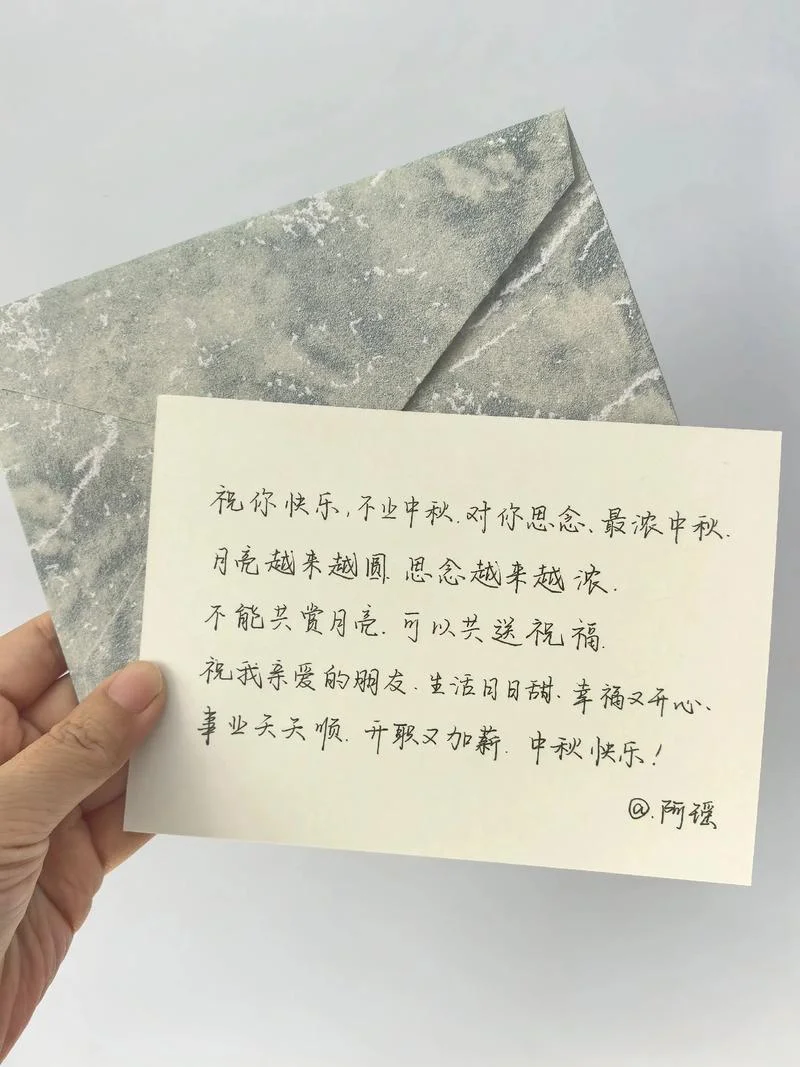 祝你快乐,不止中秋.对你思念、最浓中秋.
月亮越来越圆.思念越来越浓.
不能共赏月亮.可以共送祝福.
祝我亲爱的朋友.生活日日甜.幸福又开心、
事业天天顺.升职又加薪.中秋快乐!
@.阿瑶